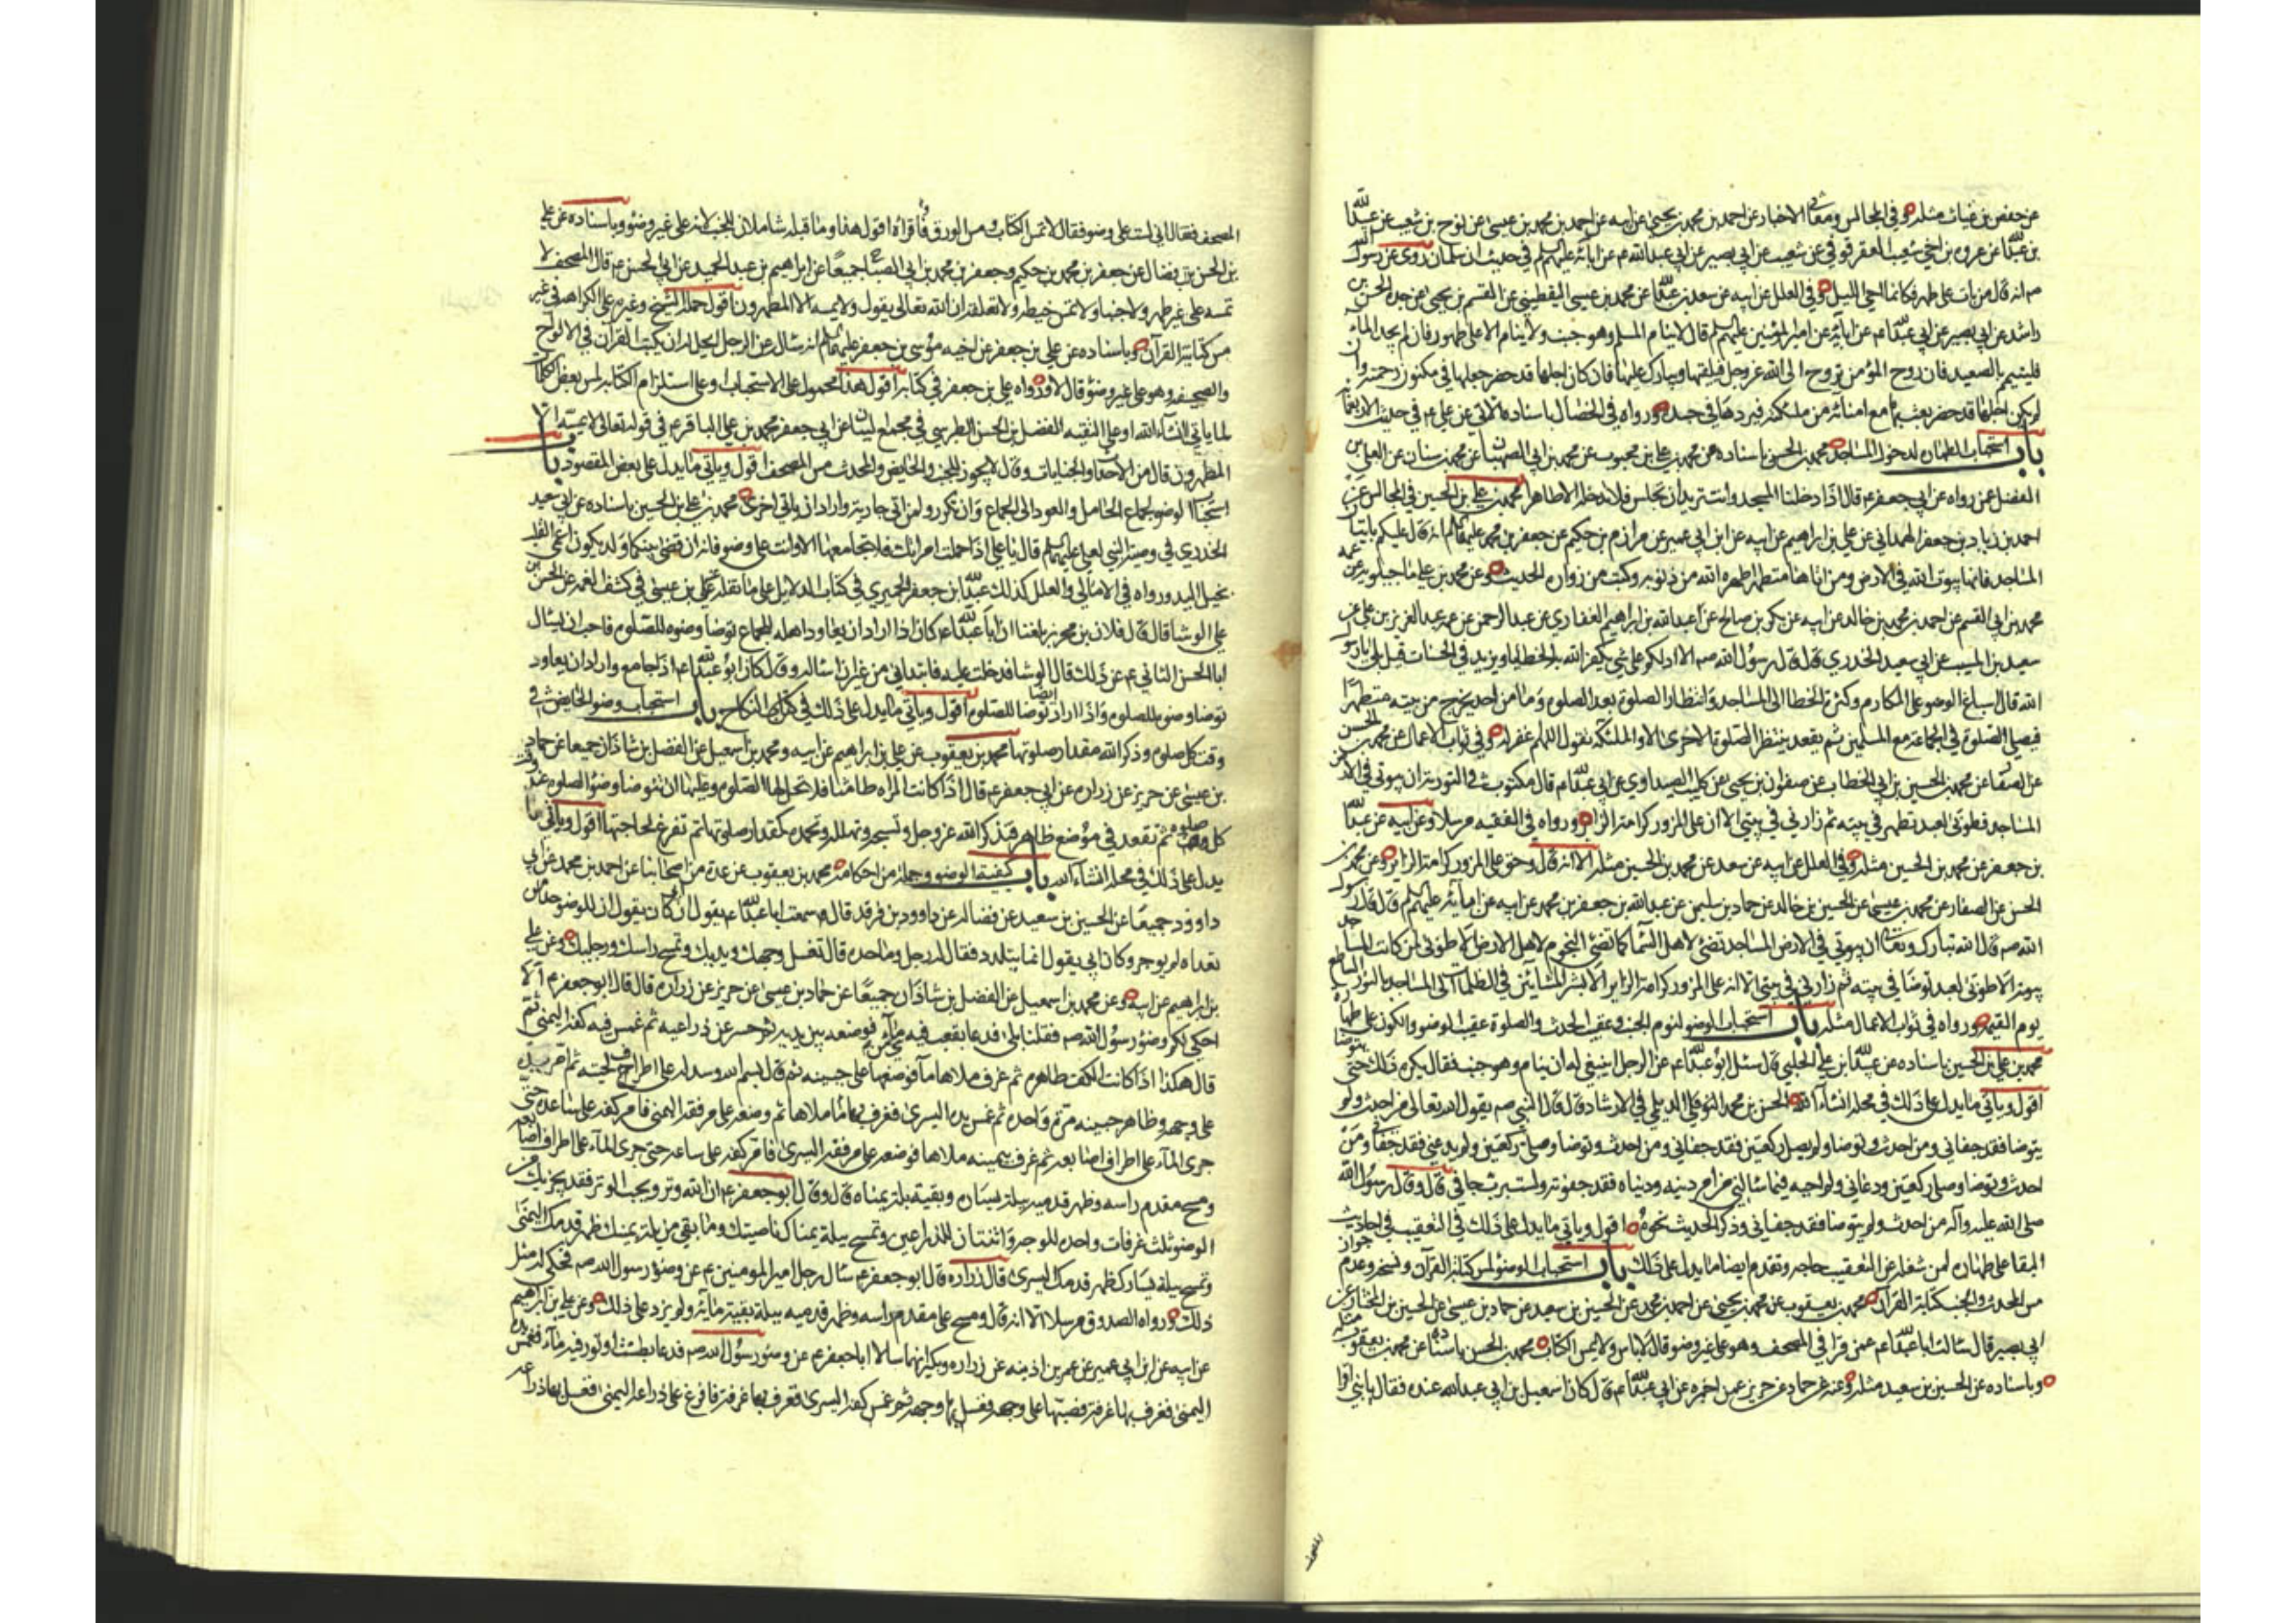 عن حفص بن غياث مثله وفي المجالس ومعاني الاخبار عن احمد بن محمد بن يحيى عن ابيه عن احمد بن محمد بن عيسى عن نوح بن شعيب عن عبيدالله
بن عبدالله عن عروه بن اخي شعيب العقرقوفي عن شعيب عن ابي بصير عن ابي عبدالله ع عن ابائه عليهم السلم في حديث ان سلمان روى عن رسول الله
ص انه قال من بات على طهر فكانما احيى الليل وفي العلل عن ابيه عن سعد بن عبدالله عن محمد بن عيسى اليقطيني عن القسم بن يحيى عن جده الحسن بن
راشد عن ابي بصير عن ابي عبدالله ع عن ابائه عن امير المؤمنين عليهم السلم قال لا ينام المسلم وهو جنب ولا ينام الا على طهور فان لم يجد الماء
فليتيمم بالصعيد فان روح المؤمن تروح الى الله عز وجل فيلقيها ويبارك عليها فان كان اجلها قد حضر جعلها في مكنون رحمته وان
لم يكن اجلها قد حضر بعث بها مع امنائه من ملئكته فيردها في جسده ورواه في الخصال باسناده الاتي عن علي ع في حديث الاربعمائة
باب استحباب الطهارة لدخول المساجد محمد بن الحسن باسناده عن محمد بن علي بن محبوب عن محمد بن ابي الصهبان عن محمد بن سنان عن العلا بن
الفضيل عن رواه عن ابي جعفر ع قال اذا دخلت المسجد وانت تريد ان تجلس فلا تدخله الا طاهرا محمد بن علي بن الحسين في المجالس عن
احمد بن زياد بن جعفر الهمداني عن علي بن ابراهيم عن ابيه عن ابن ابي عمير عن مرازم بن حكيم عن جعفر بن محمد عليهما السلم انه قال عليكم باتيان
المساجد فانها بيوت الله في الارض ومن اتاها متطهرا طهره الله من ذنوبه وكتب من زواره الحديث وعن محمد بن علي ماجيلويه عن عمه
محمد بن ابي القسم عن احمد بن محمد بن خالد عن ابيه عن بكر بن صالح عن عبد الله بن ابراهيم الغفاري عن عبد الرحمن عن عمه عبد العزيز بن علي عن
سعيد بن المسيب عن ابي سعيد الخدري قال قال رسول الله ص الا ادلكم على شي يكفر الله به الخطايا ويزيد في الحسنات قيل بلى يا رسول
الله قال اسباغ الوضو على المكاره وكثرة الخطا الى المساجد وانتظار الصلوة بعد الصلوة وما من احد يخرج من بيته متطهرا
فيصلي الصلوة في الجماعة مع المسلمين ثم يقعد ينتظر الصلوة الاخرى الا والملئكة تقول اللهم اغفر له وفي ثواب الاعمال عن محمد بن الحسن
عن الصفار عن محمد بن الحسين بن ابي الخطاب عن صفوان بن يحيى عن كليب الصيداوي عن ابي عبدالله ع قال مكتوب في التورية ان بيوتي في الارض
المساجد فطوبى لعبد تطهر في بيته ثم زارني في بيتي الا ان على المزور كرامة الزاير ورواه في الفقيه مرسلا وعن ابيه عن عبدالله
بن جعفر عن محمد بن الحسين مثله وفي العلل عن ابيه عن سعد عن محمد بن الحسين مثله الا انه قال وحق على المزور كرامة الزاير وعن محمد بن
الحسن عن الصفار عن محمد بن عيسى عن الحسين بن خالد عن حماد بن سليمن عن عبدالله بن جعفر بن محمد عن ابيه عن ابائه عليهم السلم قال قال رسول
الله ص قال الله تبارك وتعالى ان بيوتي في الارض المساجد تضئ لاهل السماء كما تضئ النجوم لاهل الارض الا طوبى لمن كانت المساجد
بيوته الا طوبى لعبد توضا في بيته ثم زارني في بيتي الا ان على المزور كرامة الزاير الا بشر المشائين في الظلمات الى المساجد بالنور الساطع
يوم القيمة ورواه في ثواب الاعمال مثله باب استحباب الوضو لنوم الجنب وعقيب الحدث والصلوة عقيب الوضو والكون على طهارة
محمد بن علي بن الحسين باسناده عن عبيدالله بن علي الحلبي قال سئل ابو عبدالله ع عن الرجل اينبغي له ان ينام وهو جنب فقال يكره ذلك حتى يتوضا
اقول وياتي ما يدل على ذلك في محله انشاء الله الحسن بن محمد الديلمي في الارشاد قال قال النبي ص يقول الله تعالى من احدث ولم
يتوضا فقد جفاني ومن احدث وتوضا ولم يصل ركعتين فقد جفاني ومن احدث وتوضا وصلى ركعتين ولم يدعني فقد جفاني ومن
احدث وتوضا وصلى ركعتين ودعاني ولم اجبه فيما سالني من امر دينه ودنياه فقد جفوته ولست برب جافي قال وقال رسول الله
صلى الله عليه وآله من احدث ولم يتوضا فقد جفاني وذكر الحديث نحوه اقول وياتي ما يدل على ذلك في التعقيب في احاديث
البقا على طهارة لمن شغله عن التعقيب حاجه وتقدم ايضا ما يدل على ذلك باب استحباب الوضو لمس كتابة القرآن ونسخه وعدم جواز
مس المحدث والجنب كتابة القرآن محمد بن يعقوب عن محمد بن يحيى عن احمد بن محمد عن الحسين بن سعيد عن حماد بن عيسى عن الحسين بن المختار عن
ابي بصير قال سالت ابا عبدالله ع عمن قرا في المصحف وهو على غير وضو قال لا باس ولا يمس الكتاب محمد بن الحسن باسناده عن محمد بن يعقوب مثله
وباسناده عن الحسين بن سعيد مثله وعنه عن حماد عن حريز عمن اخبره عن ابي عبدالله ع قال كان اسمعيل بن ابي عبدالله عنده فقال يا بني اقرا
المصحف
المصحف فقال اني لست على وضو فقال لا تمس الكتاب ومس الورق فاقراه اقول هذا وما قبله شاملان للجنب لانه على غير وضو وباسناده عن علي
بن الحسن بن فضال عن جعفر بن محمد بن حكيم وجعفر بن محمد بن ابي الصباح جميعا عن ابراهيم بن عبد الحميد عن ابي الحسن ع قال المصحف لا
تمسه على غير طهر ولا جنبا ولا تمس خيطه ولا تعلقه ان الله تعالى يقول لا يمسه الا المطهرون اقول حمله الشيخ وغيره على الكراهة في غير
مس كتابة القرآن وباسناده عن علي بن جعفر عن اخيه موسى بن جعفر عليهما السلم انه سال عن الرجل ايحل له ان يكتب القرآن في الالواح
والصحيفه وهو على غير وضو قال لا ورواه علي بن جعفر في كتابه اقول هذا محمول على الاستحباب وعلى استلزام الكتابة لمس بعض الكلمات
لما ياتي انشاء الله او على التقيه الفضل بن الحسن الطبرسي في مجمع البيان عن ابي جعفر محمد بن علي الباقر ع في قوله تعالى لا يمسه الا
المطهرون قال من الاحداث والجنابات وقال لا يجوز للجنب والحايض والمحدث مس المصحف اقول وياتي ما يدل على بعض المقصود باب
استحباب الوضو لجماع الحامل والعود الى الجماع وان تكرر ولمن اتى جارية واراد ان ياتي اخرى محمد بن علي بن الحسين باسناده عن ابي سعيد
الخدري في وصية النبي لعلي عليهما السلم قال يا علي اذا حملت امراتك فلا تجامعها الا وانت على وضو فانه ان قضى بينكما ولد يكون اعمى القلب
بخيل اليد ورواه في الامالي والعلل كذلك عبدالله بن جعفر الحميري في كتاب الدلايل على ما نقله علي بن عيسى في كشف الغمة عن الحسن بن
علي الوشا قال قال فلان بن محرز بلغنا ان ابا عبدالله ع كان اذا اراد ان يعاود اهله للجماع توضا وضوء الصلوة فاحب ان تسال
ابا الحسن الثاني ع عن ذلك قال الوشا فدخلت عليه فابتداني من غير ان اساله وقال كان ابو عبدالله ع اذا جامع واراد ان يعاود
توضا وضوء للصلوة واذا اراد ايضا توضا للصلوة اقول وياتي ما يدل على ذلك في كتاب النكاح باب استحباب وضو الحايض في
وقت كل صلوة وذكر الله مقدار صلوتها محمد بن يعقوب عن علي بن ابراهيم عن ابيه ومحمد بن اسمعيل عن الفضل بن شاذان جميعا عن حماد
بن عيسى عن حريز عن زراره عن ابي جعفر ع قال اذا كانت المراه طامثا فلا تحل لها الصلوة وعليها ان تتوضا وضوء الصلوه عند وقت
كل صلوه ثم تقعد في موضع طاهر فتذكر الله عز وجل وتسبحه وتهلله وتحمده كمقدار صلوتها ثم تفرغ لحاجتها اقول وياتي ما
يدل على ذلك في محله انشاء الله باب كيفية الوضو وجملة من احكامه محمد بن يعقوب عن عدة من اصحابنا عن احمد بن محمد عن ابي
داوود جميعا عن الحسين بن سعيد عن فضاله عن داوود بن فرقد قال سمعت ابا عبدالله ع يقول ان ابي كان يقول ان للوضو حدا من
تعداه لم يوجر وكان ابي يقول انما يتلدد فقال له رجل وما حده قال تغسل وجهك ويديك وتمسح راسك ورجليك وعن علي
بن ابراهيم عن ابيه وعن محمد بن اسمعيل عن الفضل بن شاذان جميعا عن حماد بن عيسى عن حريز عن زراره قال قال ابو جعفر ع الا
احكي لكم وضوء رسول الله ص فقلنا بلى فدعا بقعب فيه شئ من ماء فوضعه بين يديه ثم حسر عن ذراعيه ثم غمس فيه كفه اليمنى ثم
قال هكذا اذا كانت الكف طاهره ثم غرف ملاها ماء فوضعها على جبينه ثم قال بسم الله وسدله على اطراف لحيته ثم امر يده
على وجهه وظاهر جبينه مرة واحده ثم غمس يده اليسرى فغرف بها ملاها ثم وضعه على مرفقه اليمنى فامر كفه على ساعده حتى
جرى الماء على اطراف اصابعه ثم غرف بيمينه ملاها فوضعه على مرفقه اليسرى فامر كفه على ساعده حتى جرى الماء على اطراف اصابعه
ومسح مقدم راسه وظهر قدميه ببلة يساره وبقية بلة يمناه قال وقال ابو جعفر ع ان الله وتر ويحب الوتر فقد يجزيك من
الوضو ثلث غرفات واحده للوجه واثنتان للذراعين وتمسح ببلة يمناك ناصيتك وما بقي من بلة يمينك ظهر قدمك اليمنى
وتمسح ببلة يسارك ظهر قدمك اليسرى قال زراره قال ابو جعفر ع سال رجل امير المومنين ع عن وضوء رسول الله ص فحكى له مثل
ذلك ورواه الصدوق مرسلا الا انه قال ومسح على مقدم راسه وظهر قدميه ببلة بقية مائه ولم يزد على ذلك وعن علي بن ابراهيم
عن ابيه عن ابن ابي عمير عن عمر بن اذينه عن زراره وبكير انهما سالا ابا جعفر ع عن وضوء رسول الله ص فدعا بطشت او تور فيه ماء فغمس يده
اليمنى فغرف بها غرفة فصبها على وجهه فغسل بها وجهه ثم غمس كفه اليسرى فغرف بها غرفة فافرغ على ذراعه اليمنى فغسل بها ذراعه